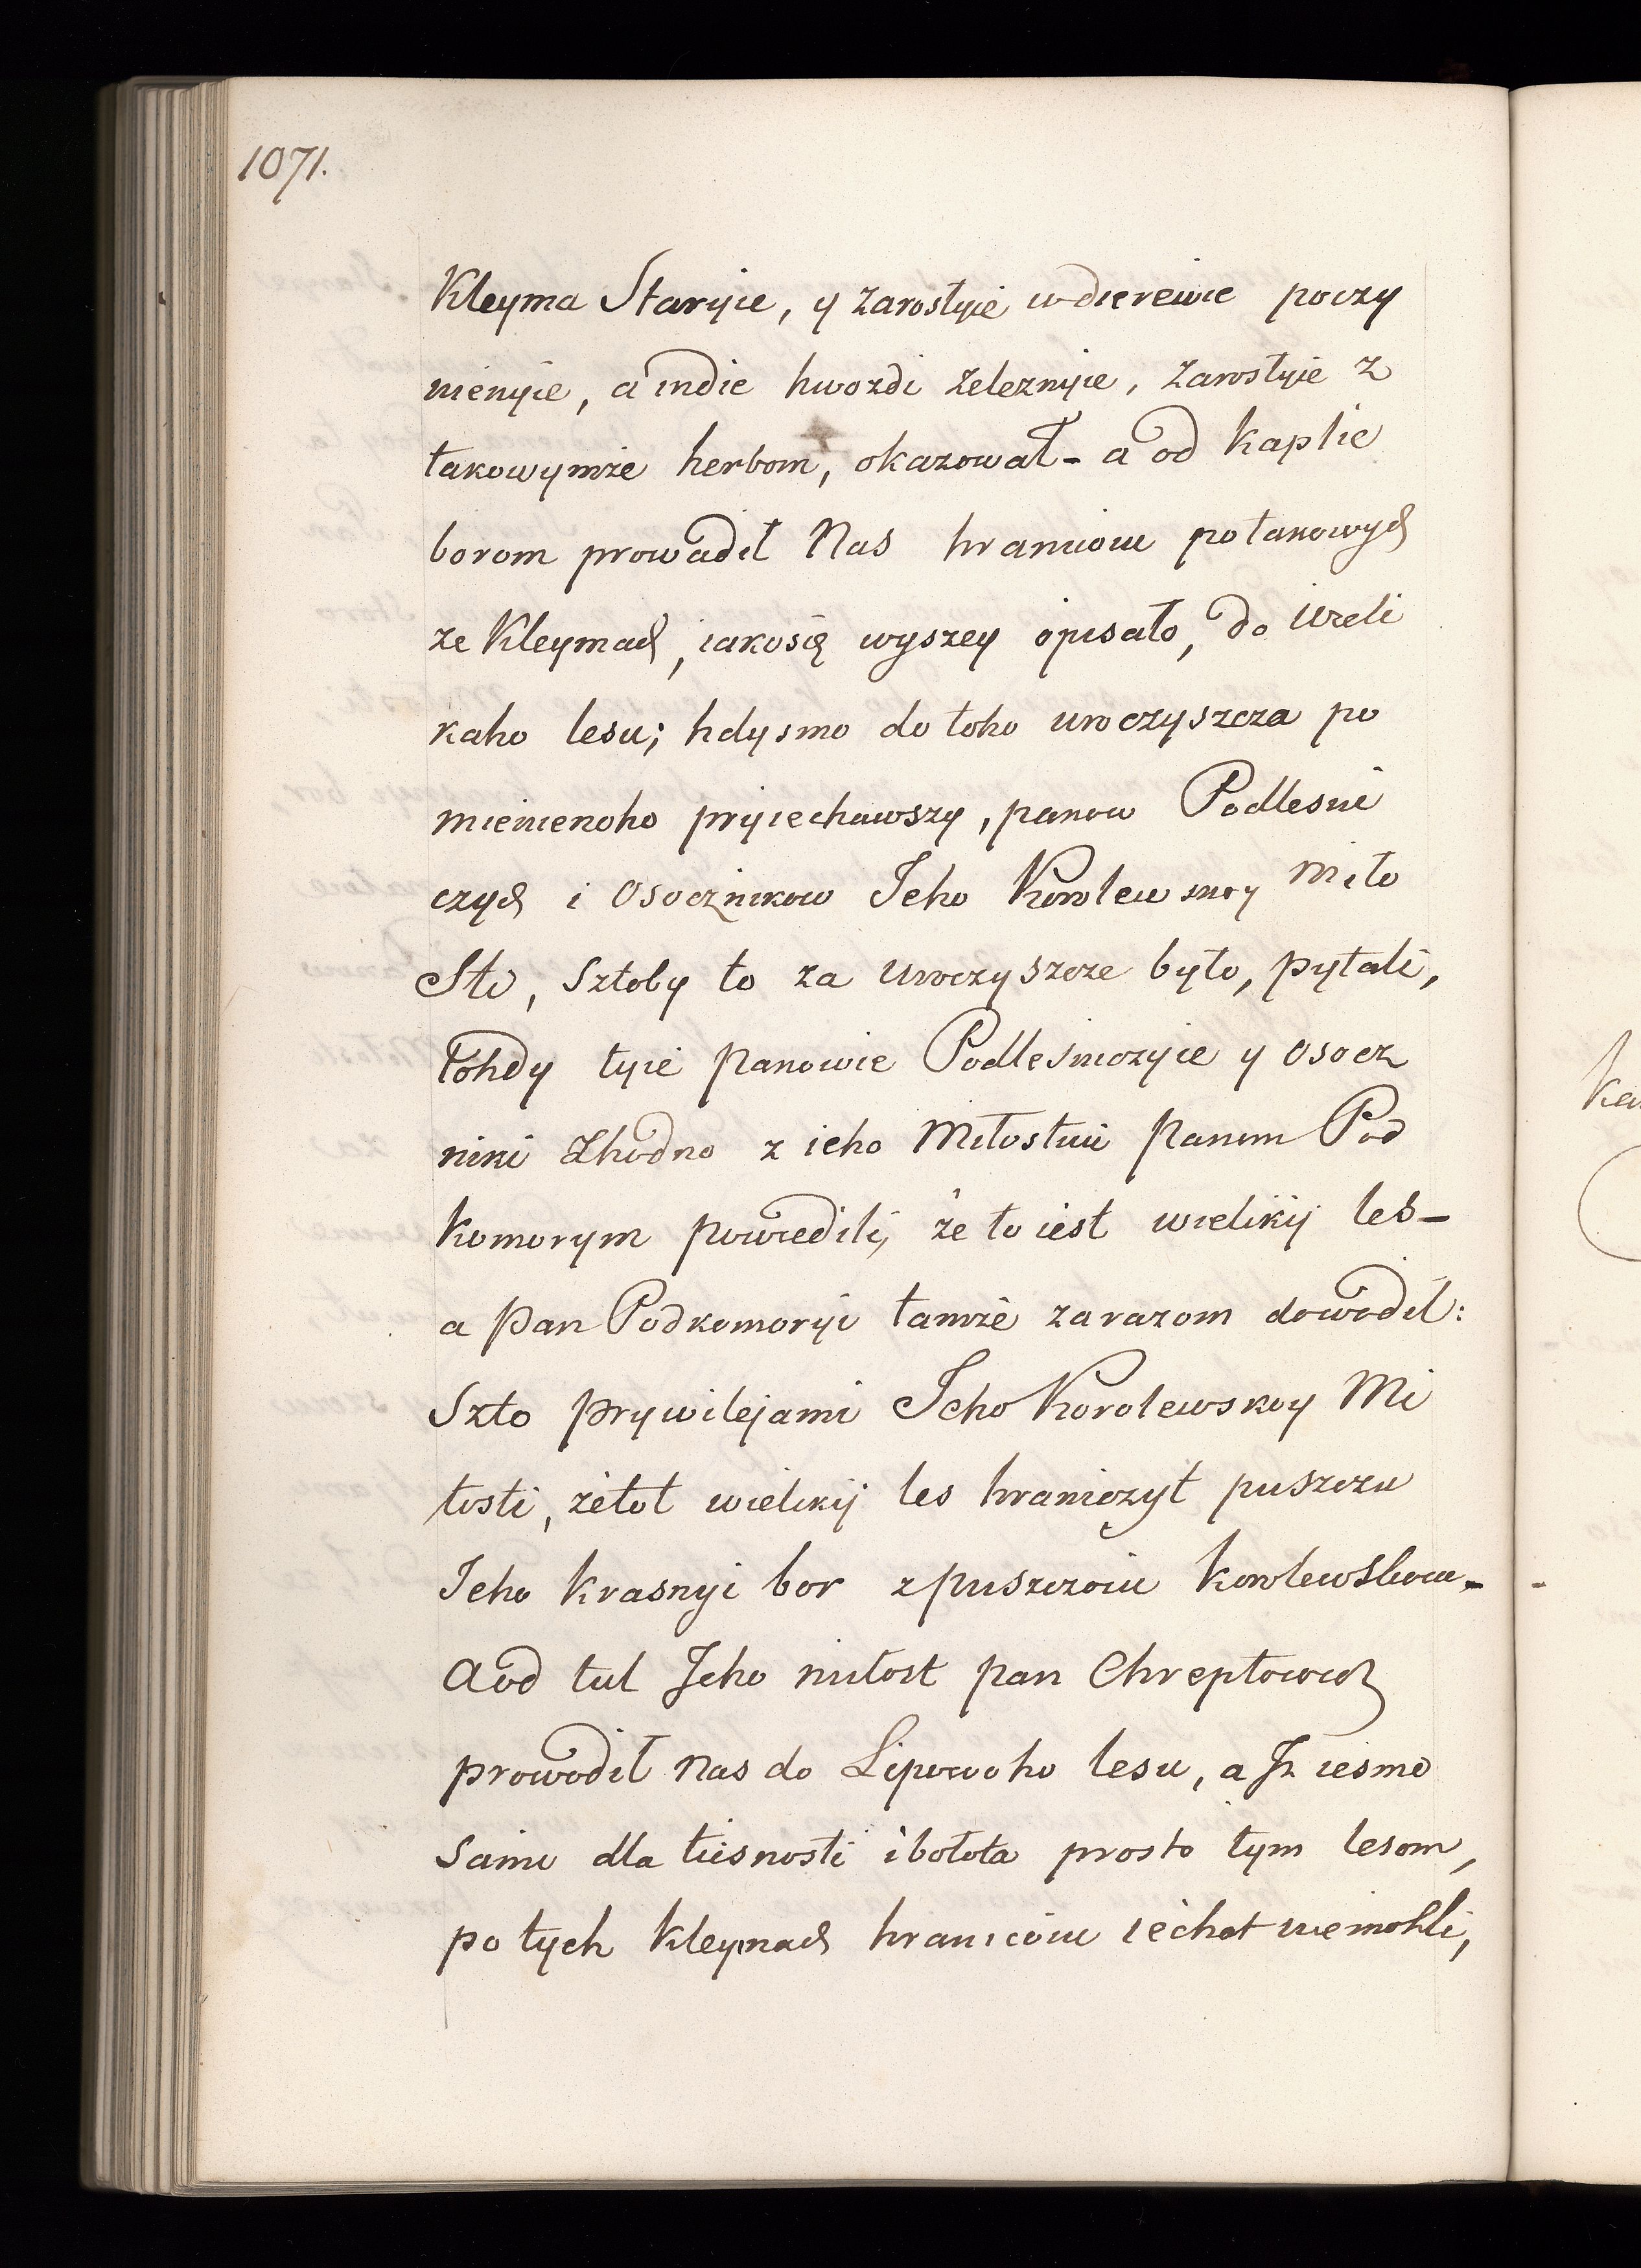 1071.
Kleyma Staryie, y zarostyie w dierewie poczy
nienyie, a indie hwozdi zelezniie, zarostyie z
takowymże herbom, okazował – a od kaplie
borom prowadił Nas hraniciou po takowych
że Kleymach, iakosię wyszey opisało, do Weli
kaho lesu; hdysmo do toho uroczyszcza po
mienienoho pryiechawszy, panow Podlesni
czych i Osocznikow Jeho Korolewskoy Miło
Sti, Sztoby to za Uroczyszcze było, pytali,
tohdy tyie Panowie Podlesniczyie y osocz
niki Zhodno z ieho Miłostiu Panom Pod
komorym powiedili, że to iest wielikij les –
a Pan Podkomoryi tamże zarazom dowodił:
Szto prywilejami Jeho Korolewskoy Mi
łosti, że tot wielikij les hraniczyt puszczu
Jeho Krasnyi bor z puszczoiu korolewskoiu –
A od tul Jeho miłost pan Chreptowicz
prowodił Nas do Lipowoho lesu, a Iż iesmo
Sami dla tiesnosti i bołota prosto tym lesom,
po tych Kleymach hraniciou iechat niemohli,